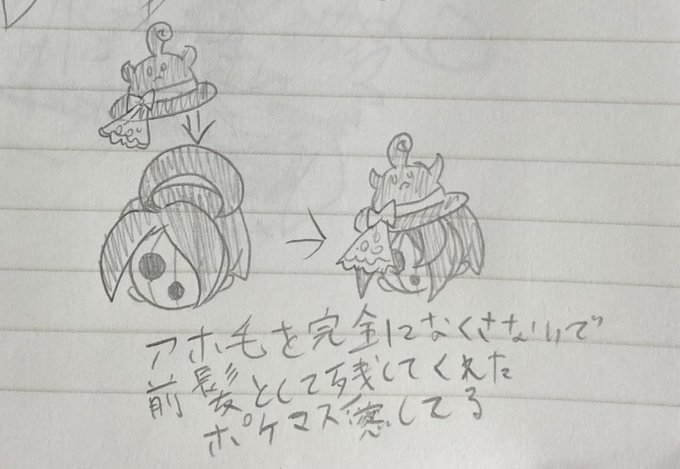 アホ毛を完全になくさないで
前髪として残してくれた
ポケマス癒してる